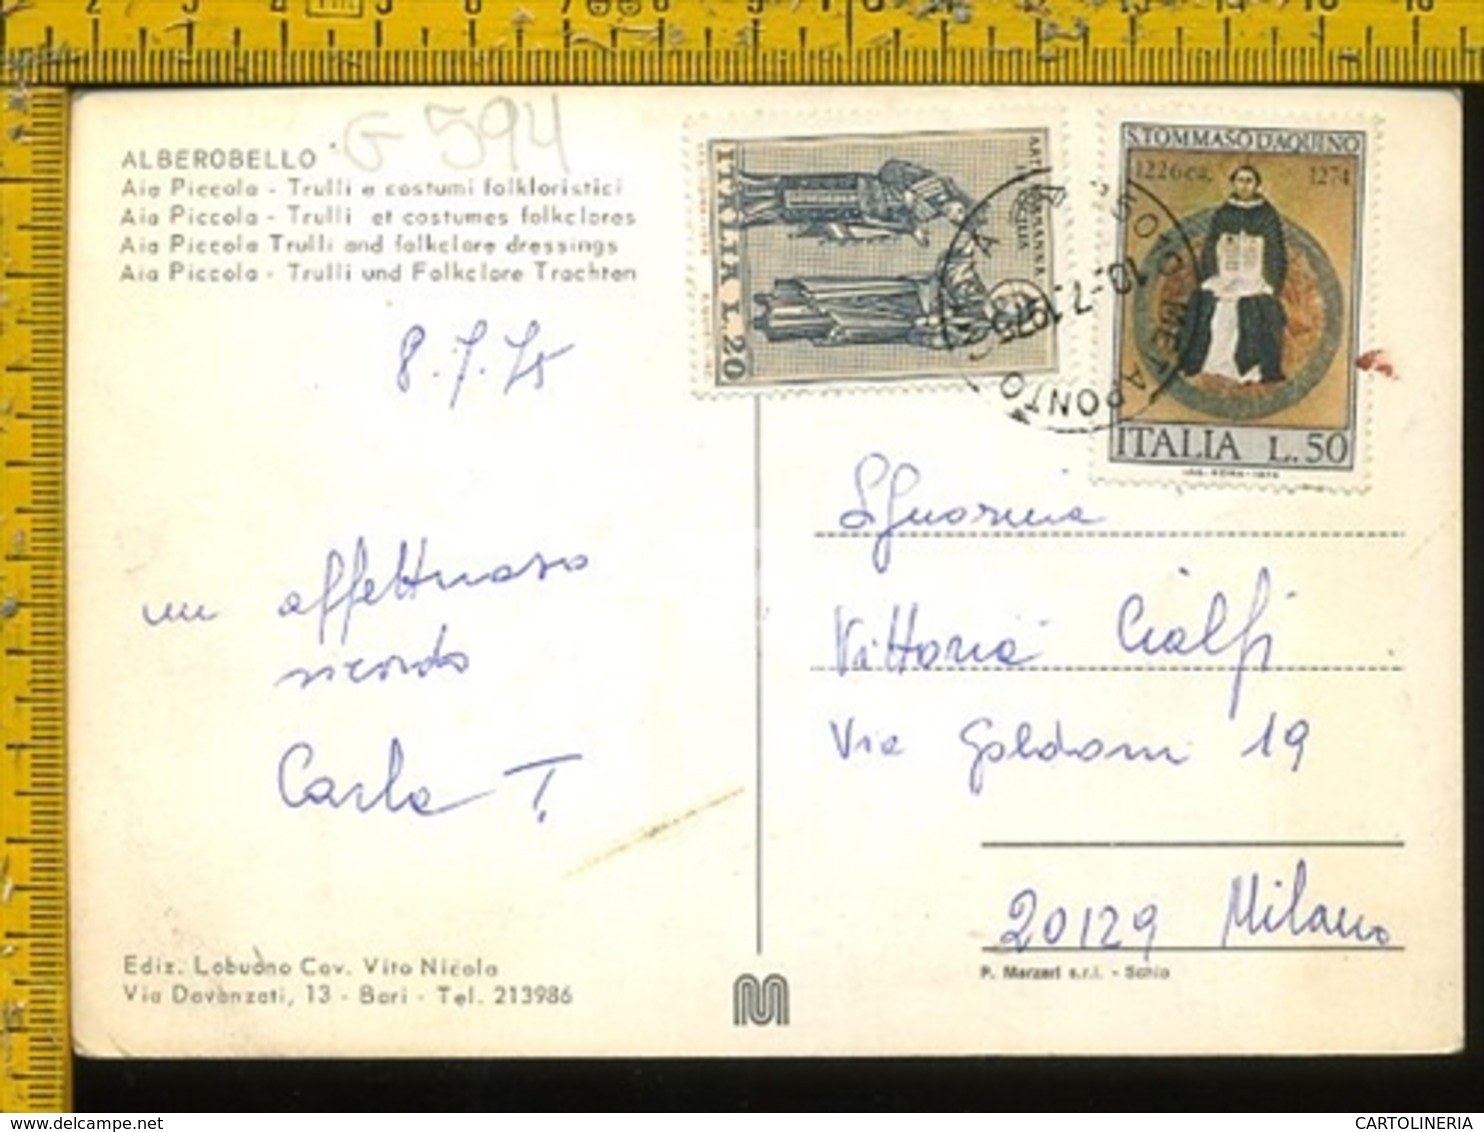 G 594
ALBEROBELLO
Aia Piccola - Trulli e costumi folkloristici
Aia Piccola - Trulli et costumes folkclores
Aia Piccola Trulli and folkclore dressings
Aia Piccola - Trulli und Folkclore Trachten
8.7.75
un affettuoso
ricordo
Carla T.
Ediz. Lobuono Cav. Vito Nicola
Via Davanzati, 13 - Bari - Tel. 213986
ITALIA L.20
10.-7.1975
METAPONTO
S.TOMMASO D'AQUINO
1226ca. 1274
ITALIA L.50
I.P.S.-ROMA-1974
Signorina
Vittoria Cialfi
Via Goldoni 19
20129 Milano
P. Marzari s.r.l. - Schio
CARTOLINERIA